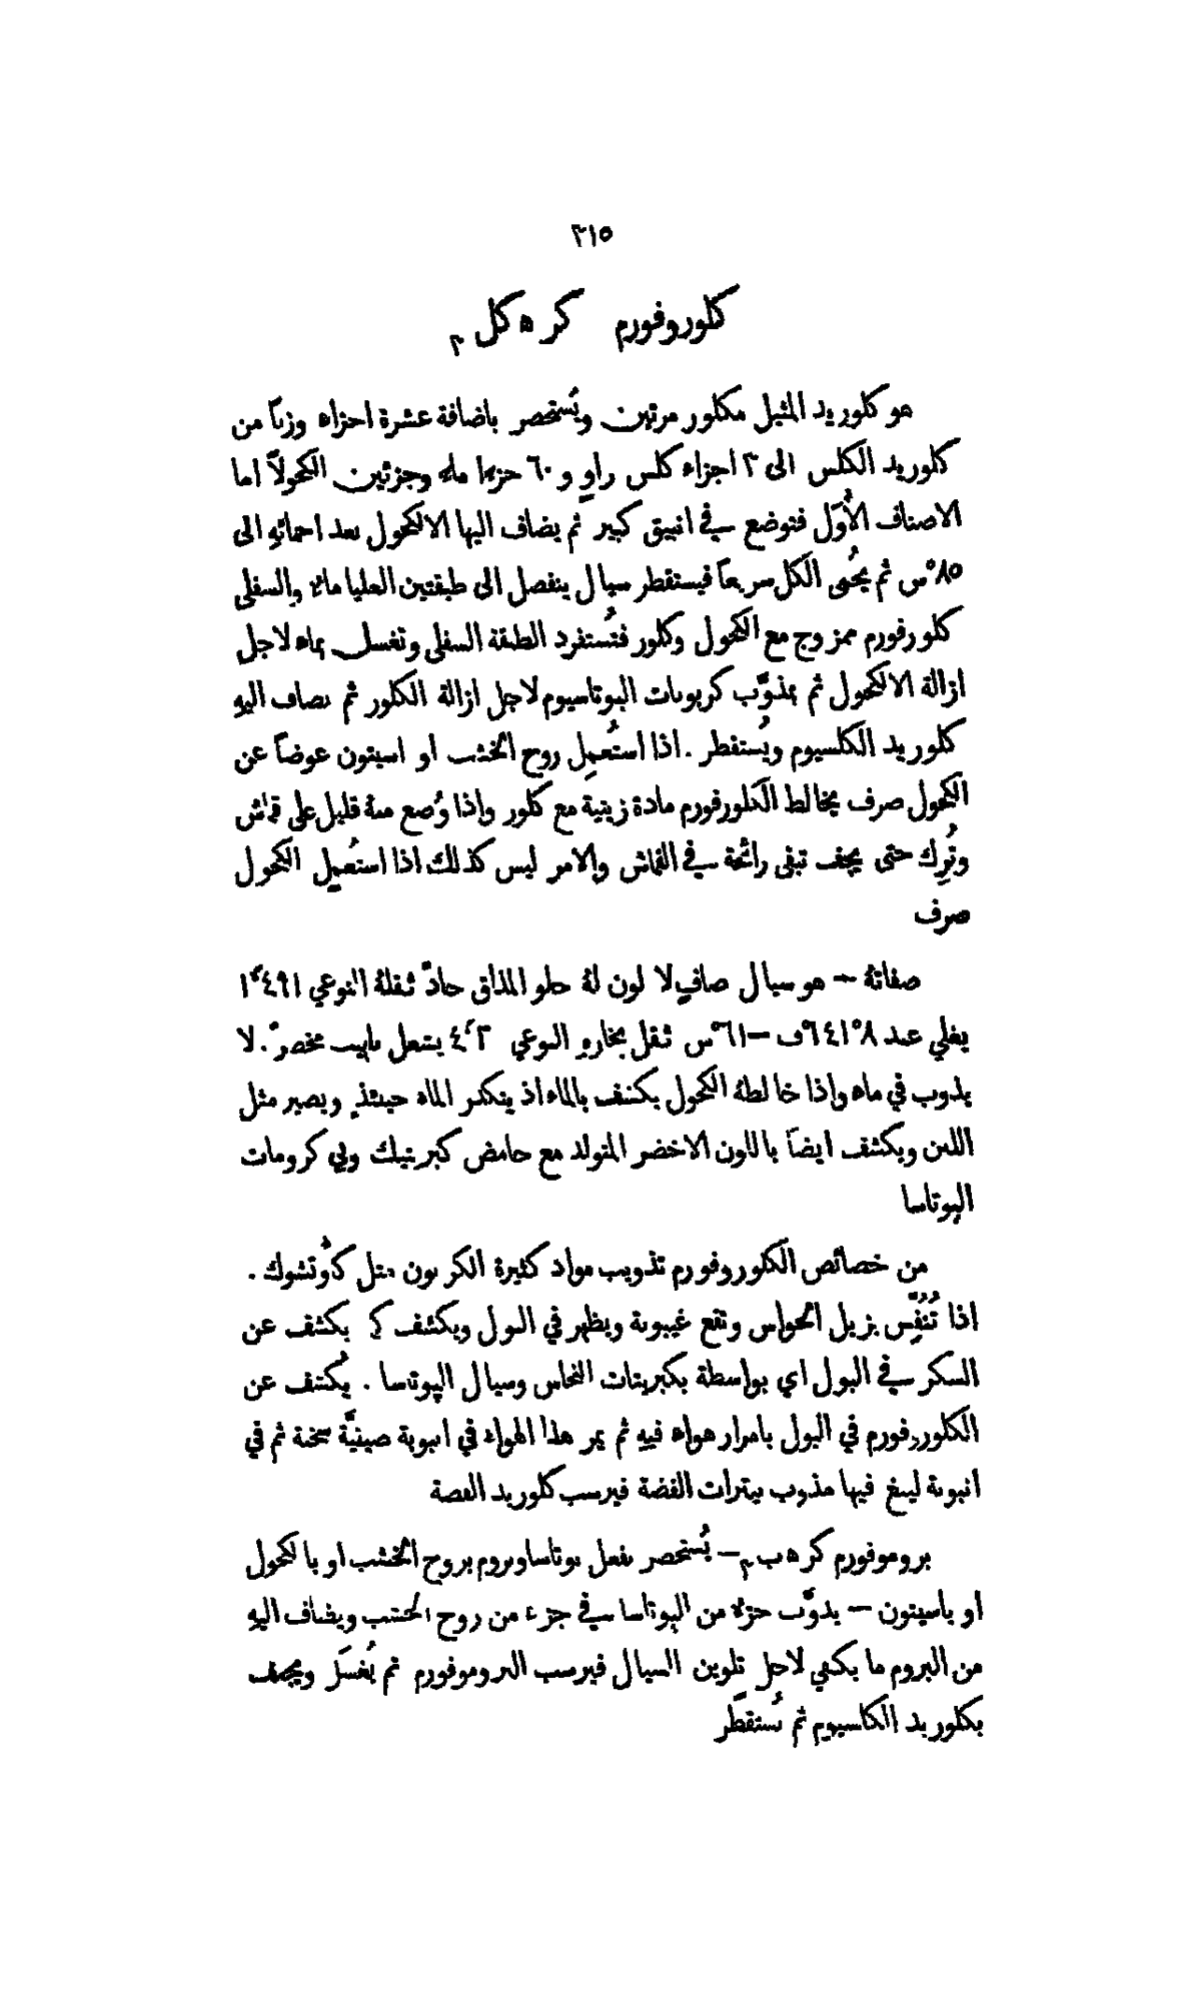 ٣١٥
كلوروفورم كر ه كل ٣
هو كلوريد المثيل مكلور مرتين ويُستحضر باضافة عشرة اجزاء وزناً من
كلوريد الكلس الى ٣ اجزاء كلس راوٍ و ٦٠ جزءا ماء وجزئين الكحولاً اما
الاصناف الأُوَل فتوضع في انبيق كبير ثم يضاف اليها الالكحول بعد احمائهِ الى
٨٥°س ثم يُحْمَى الكل سريعاً فيستقطر سيال ينفصل الى طبقتين العليا مائه والسفلى
كلورفورم ممزوج مع الكحول وكلور فتُستفرد الطبقة السفلى وتغسل بماء لاجل
ازالة الالكحول ثم بمذوَّب كربونات البوتاسيوم لاجل ازالة الكلور ثم يضاف اليهِ
كلوريد الكلسيوم ويُستقطر . اذا استُعمِل روح الخشب او اسيتون عوضاً عن
الكحول صرف يخالط الكلورفورم مادة زيتية مع كلور واذا وُضع منهُ قليل على قماش
وتُرِك حتى يجف تبقى رائحة في القماش والامر ليس كذلك اذا استُعمِل الكحول
صرف
صفاتهُ – هو سيال صافٍ لا لون لهُ حلو المذاق حادّ ثقلهُ النوعي ١٬٤٩١
يغلي عند ١٤١°٨ف – ٦١°س ثقل بخارهِ النوعي ٤٬٢ يشعل بلهيب مخضرّ . لا
يذوب في ماء واذا خالطهُ الكحول يكشف بالماء اذ يتكدر الماء حينئذٍ ويصير مثل
اللبن ويكشف ايضاً باللون الاخضر المتولد مع حامض كبريتيك وبي كرومات
البوتاسا
من خصائص الكلوروفورم تذويب مواد كثيرة الكربون مثل كَوُتشوك .
اذا تُنُفِّس يزيل الحواس وتقع غيبوبة ويظهر في البول ويكشف كما يكشف عن
السكر في البول اي بواسطة بكبريتات النحاس وسيال البوتاسا . يُكشف عن
الكلورفورم في البول بامرار هواء فيهِ ثم يمر هذا الهواء في انبوبة صينيَّة سخنة ثم في
انبوبة ليبغ فيها مذوب نيترات الفضة فيرسب كلوريد الفضة
بروموفورم كر ه ب٣ – يُستحضر بفعل بوتاسا وبروم بروح الخشب او بالكحول
او باسيتون – يذوَّب جزء من البوتاسا في جزء من روح الخشب ويضاف اليهِ
من البروم ما يكفي لاجل تلوين السيال فيرسب البروموفورم ثم يُغسَل ويجفف
بكلوريد الكلسيوم ثم يُستقطَر